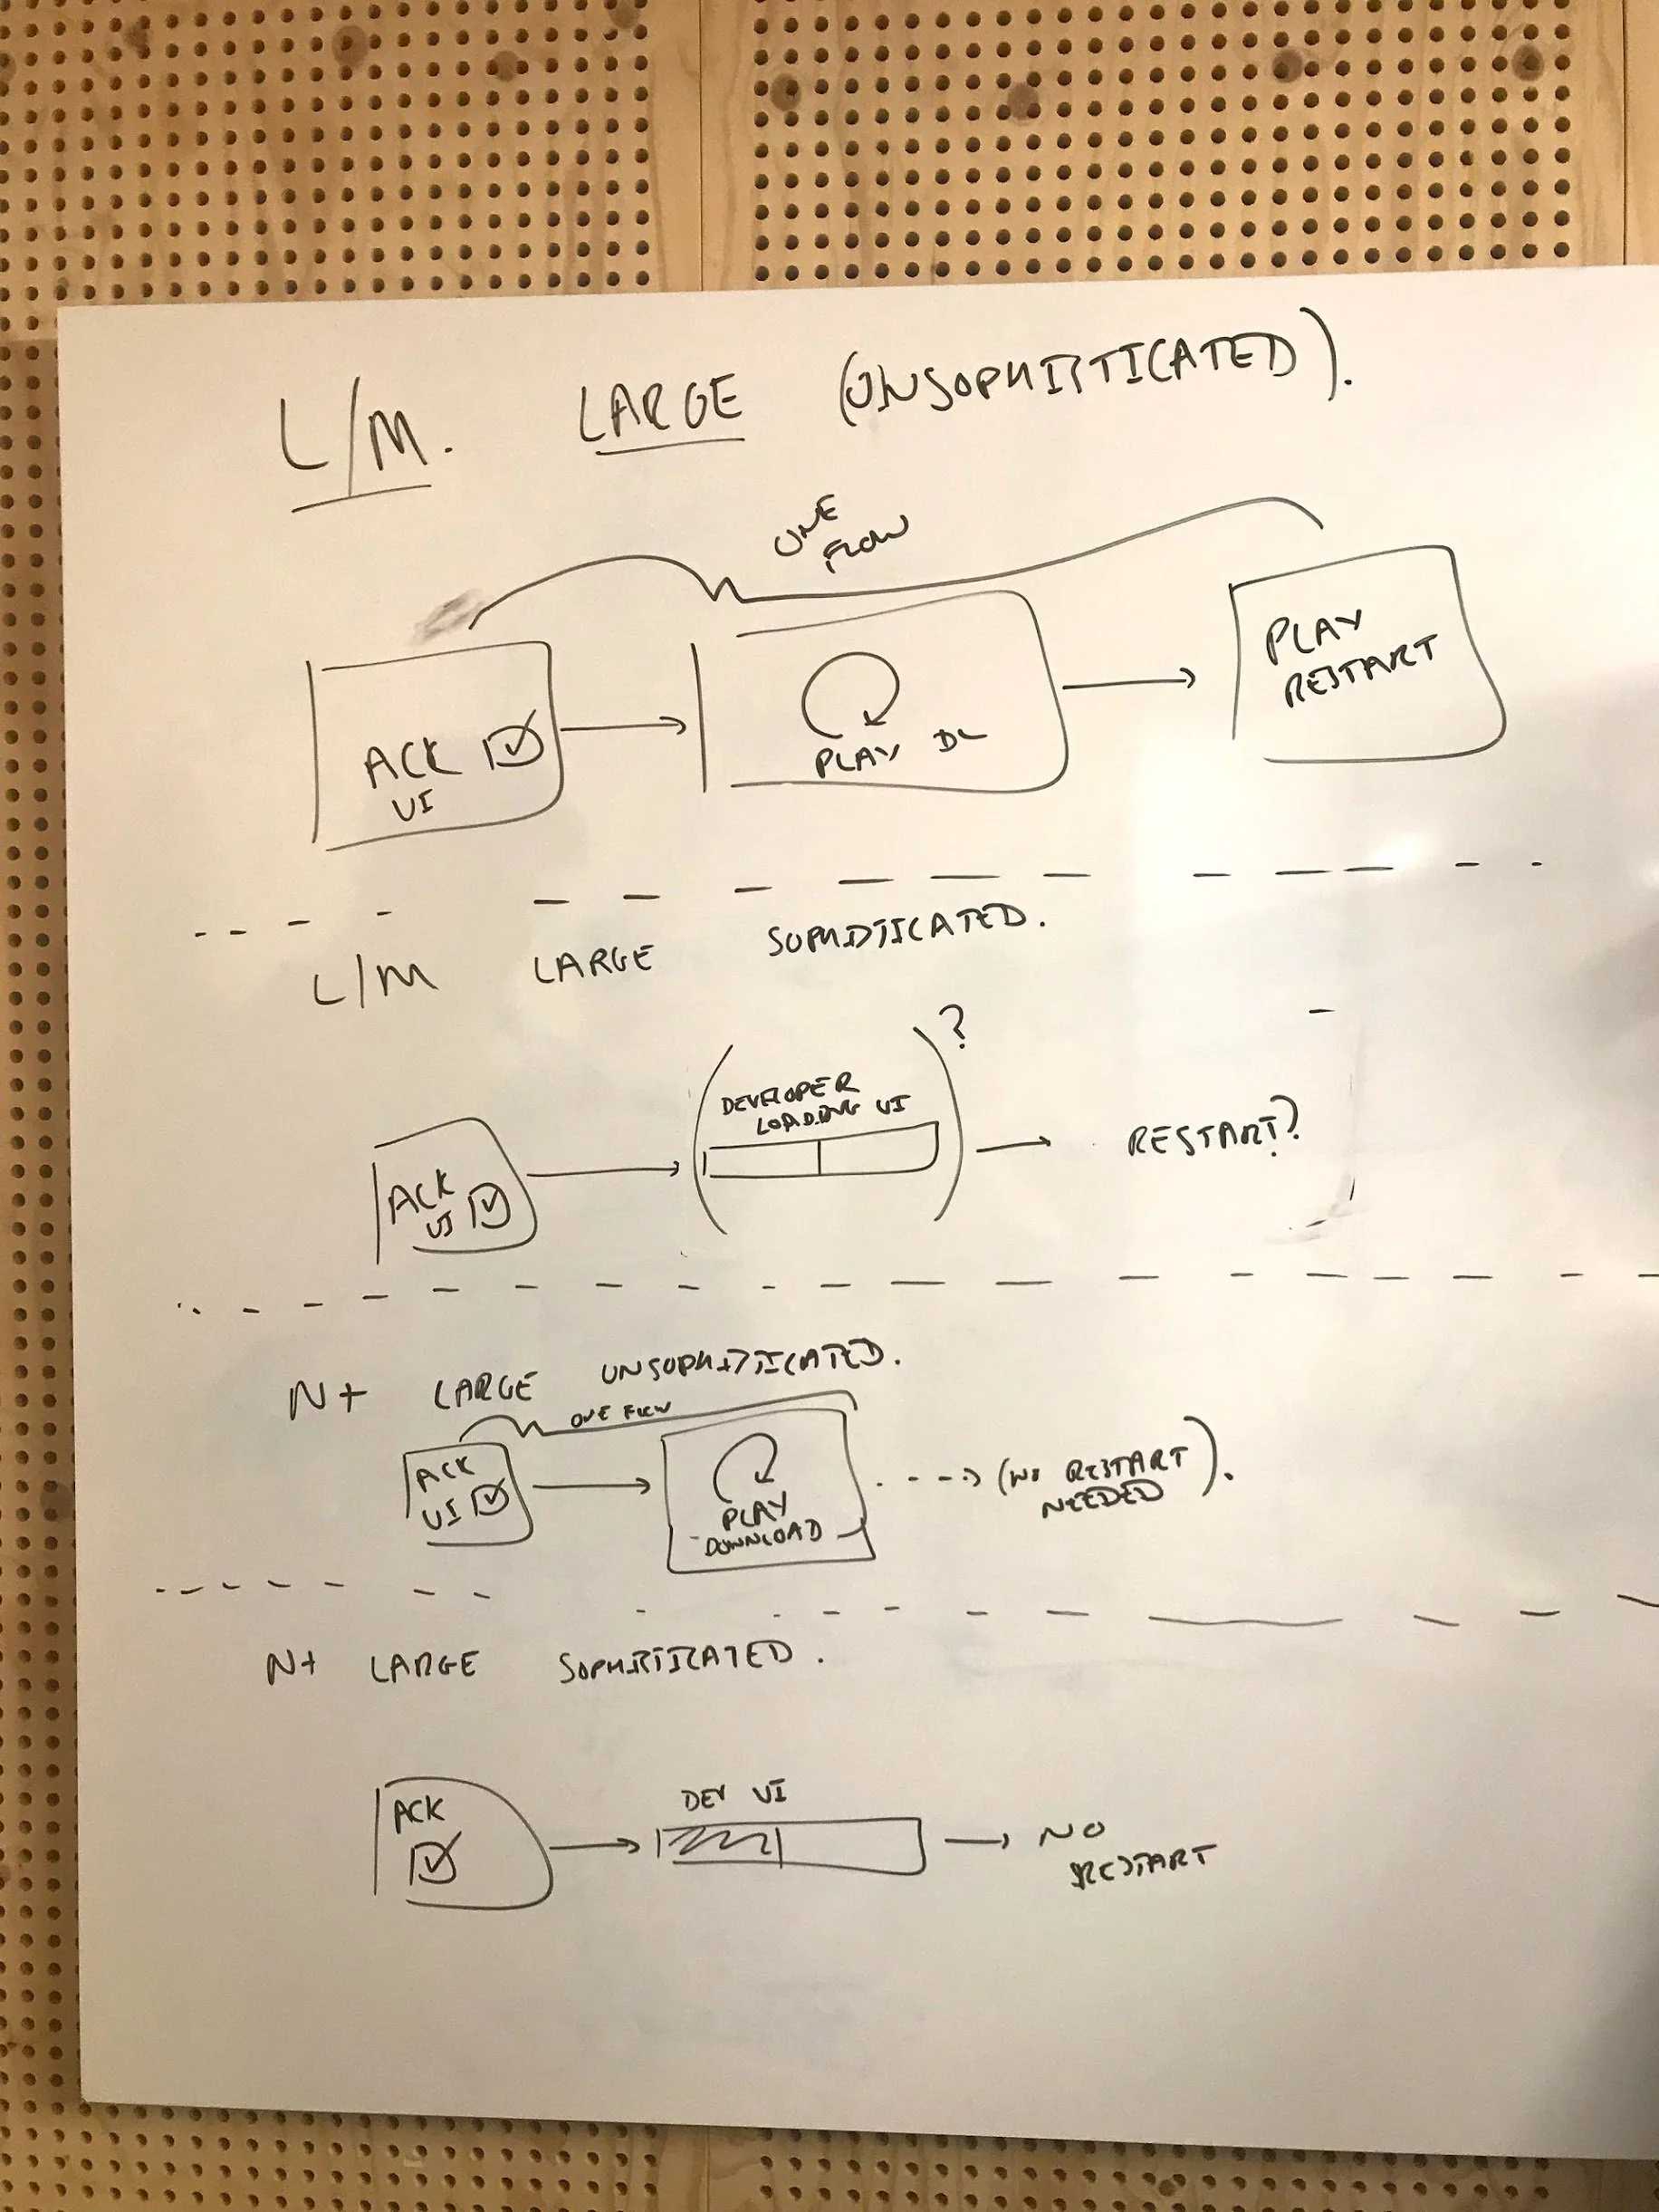 L/M. LARGE (UNSOPHISTICATED).
ONE
FLOW
ACK
UI
PLAY DL
PLAY
RESTART
L/M LARGE SOPHISTICATED.
ACK
UI
DEVELOPER
LOADING UI
?
RESTART?
N+ LARGE UNSOPHISTICATED.
ONE FLOW
ACK
UI
PLAY
DOWNLOAD
(NO RESTART
NEEDED).
N+ LARGE SOPHISTICATED.
ACK
DEV UI
NO
RESTART